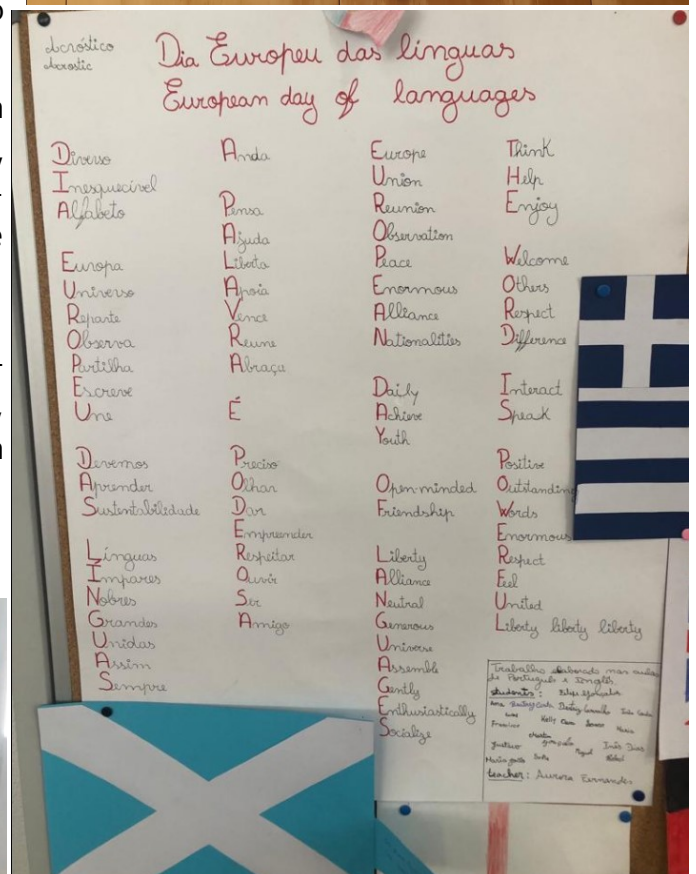 Acróstico
Acrostic
Dia Europeu das línguas
European day of languages
Diverso
Inesquecível
Alfabeto
Europa
Universo
Reparte
Observa
Partilha
Escreve
Une
Devemos
Aprender
Sustentabilidade
Línguas
Ímpares
Nobres
Grandes
Unidas
Assim
Sempre
Anda
Pensa
Ajuda
Liberta
Apoia
Vence
Reune
Abraça
É
Preciso
Olhar
Dar
Empreender
Respeitar
Ouvir
Ser
Amigo
Europe
Union
Reunion
Observation
Peace
Enormous
Alliance
Nationalities
Daily
Achieve
Youth
Open-minded
Friendship
Liberty
Alliance
Neutral
Generous
Universe
Assemble
Gently
Enthusiastically
Socialize
Think
Help
Enjoy
Welcome
Others
Respect
Difference
Interact
Speak
Positive
Outstanding
Words
Enormous
Respect
Feel
United
Liberty liberty liberty
Trabalho elaborado nas aulas
de Português e Inglês.
students:
Beatriz
Francisco
Gustavo Gonçalo Miguel Inês Dias
Maria Sofia
teacher: Aurora Fernandes